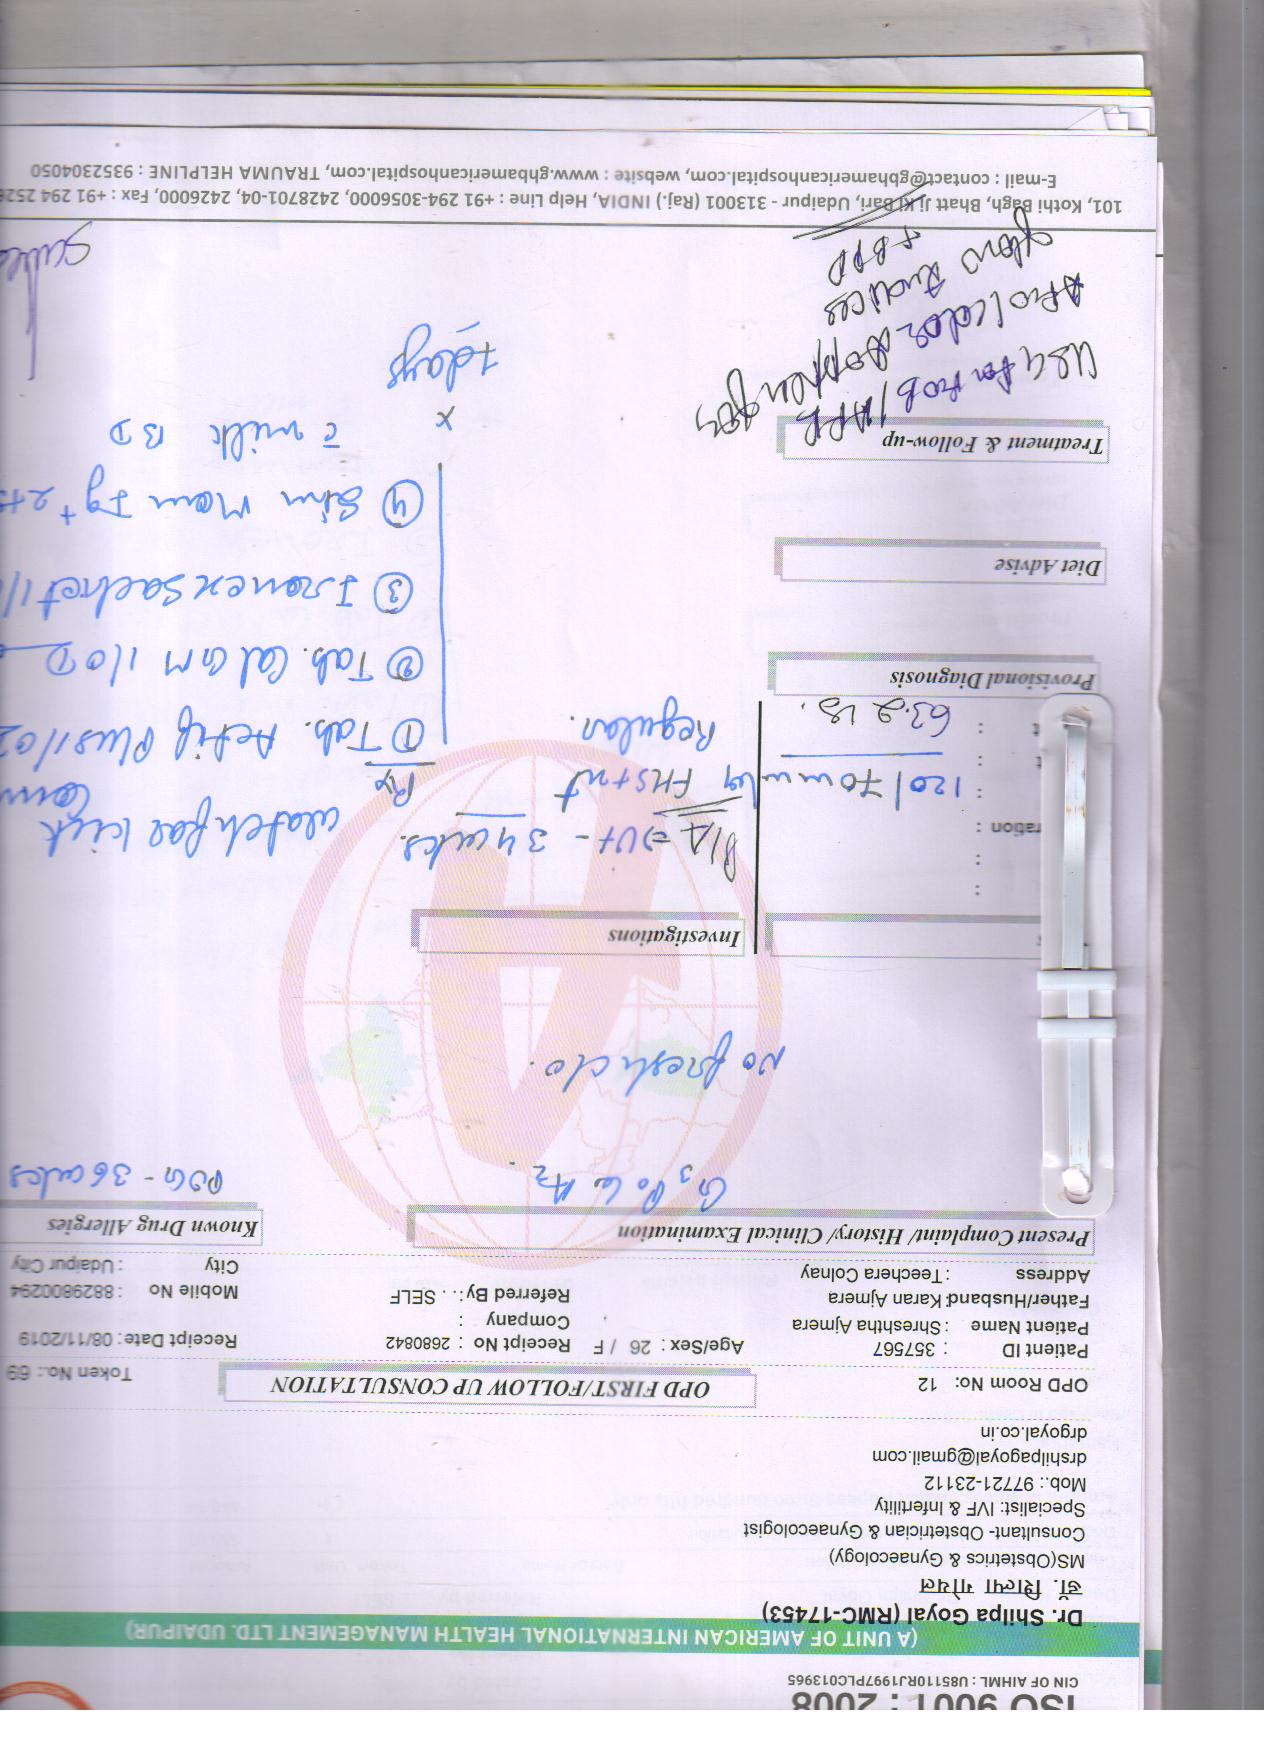 ISO 9001 : 2008
CIN OF AIHML : U85110RJ1997PLC013965
(A UNIT OF AMERICAN INTERNATIONAL HEALTH MANAGEMENT LTD. UDAIPUR)
Dr. Shilpa Goyal (RMC-17453)
डॉ. शिल्पा गोयल
MS(Obstetrics & Gynaecology)
Consultant- Obstetrician & Gynaecologist
Specialist: IVF & Infertility
Mob.: 97721-23112
drshilpagoyal@gmail.com
drgoyal.co.in
OPD Room No: 12
OPD FIRST/FOLLOW UP CONSULTATION
Token No.: 69
Patient ID : 357567
Age/Sex : 26 / F
Receipt No : 2680842
Receipt Date: 08/11/2019
Patient Name : Shreshtha Ajmera
Company :
Father/Husband: Karan Ajmera
Referred By: . . SELF
Mobile No : 8829800294
Address : Teechera Colnay
City : Udaipur City
Present Complaint/ History/ Clinical Examination
Known Drug Allergies
G3 P0 L0 A2
POG - 36 wks
No fresh c/o.
Investigations
P/A => Ut - 34 wks.
watch for kick
ration :
120/70 mmHg
FHS+nt
Regular.
63.2
Rx
① Tab. Actif Plus 1/0
② Tab. Cal GM 1 OD
③ Ironex Sachet 1/
④ Sim Mom Ig+ 2+
c̄ milk BD
x
7 days
Provisional Diagnosis
Diet Advise
Treatment & Follow-up
USG for FOB/
color doppler for
flow Indices
+ BPD
101, Kothi Bagh, Bhatt Ji Ki Bari, Udaipur - 313001 (Raj.) INDIA, Help Line : +91 294-3056000, 2428701-04, 2426000, Fax : +91 294 252
E-mail : contact@gbhamericanhospital.com, website : www.gbhamericanhospital.com, TRAUMA HELPLINE : 9352304050